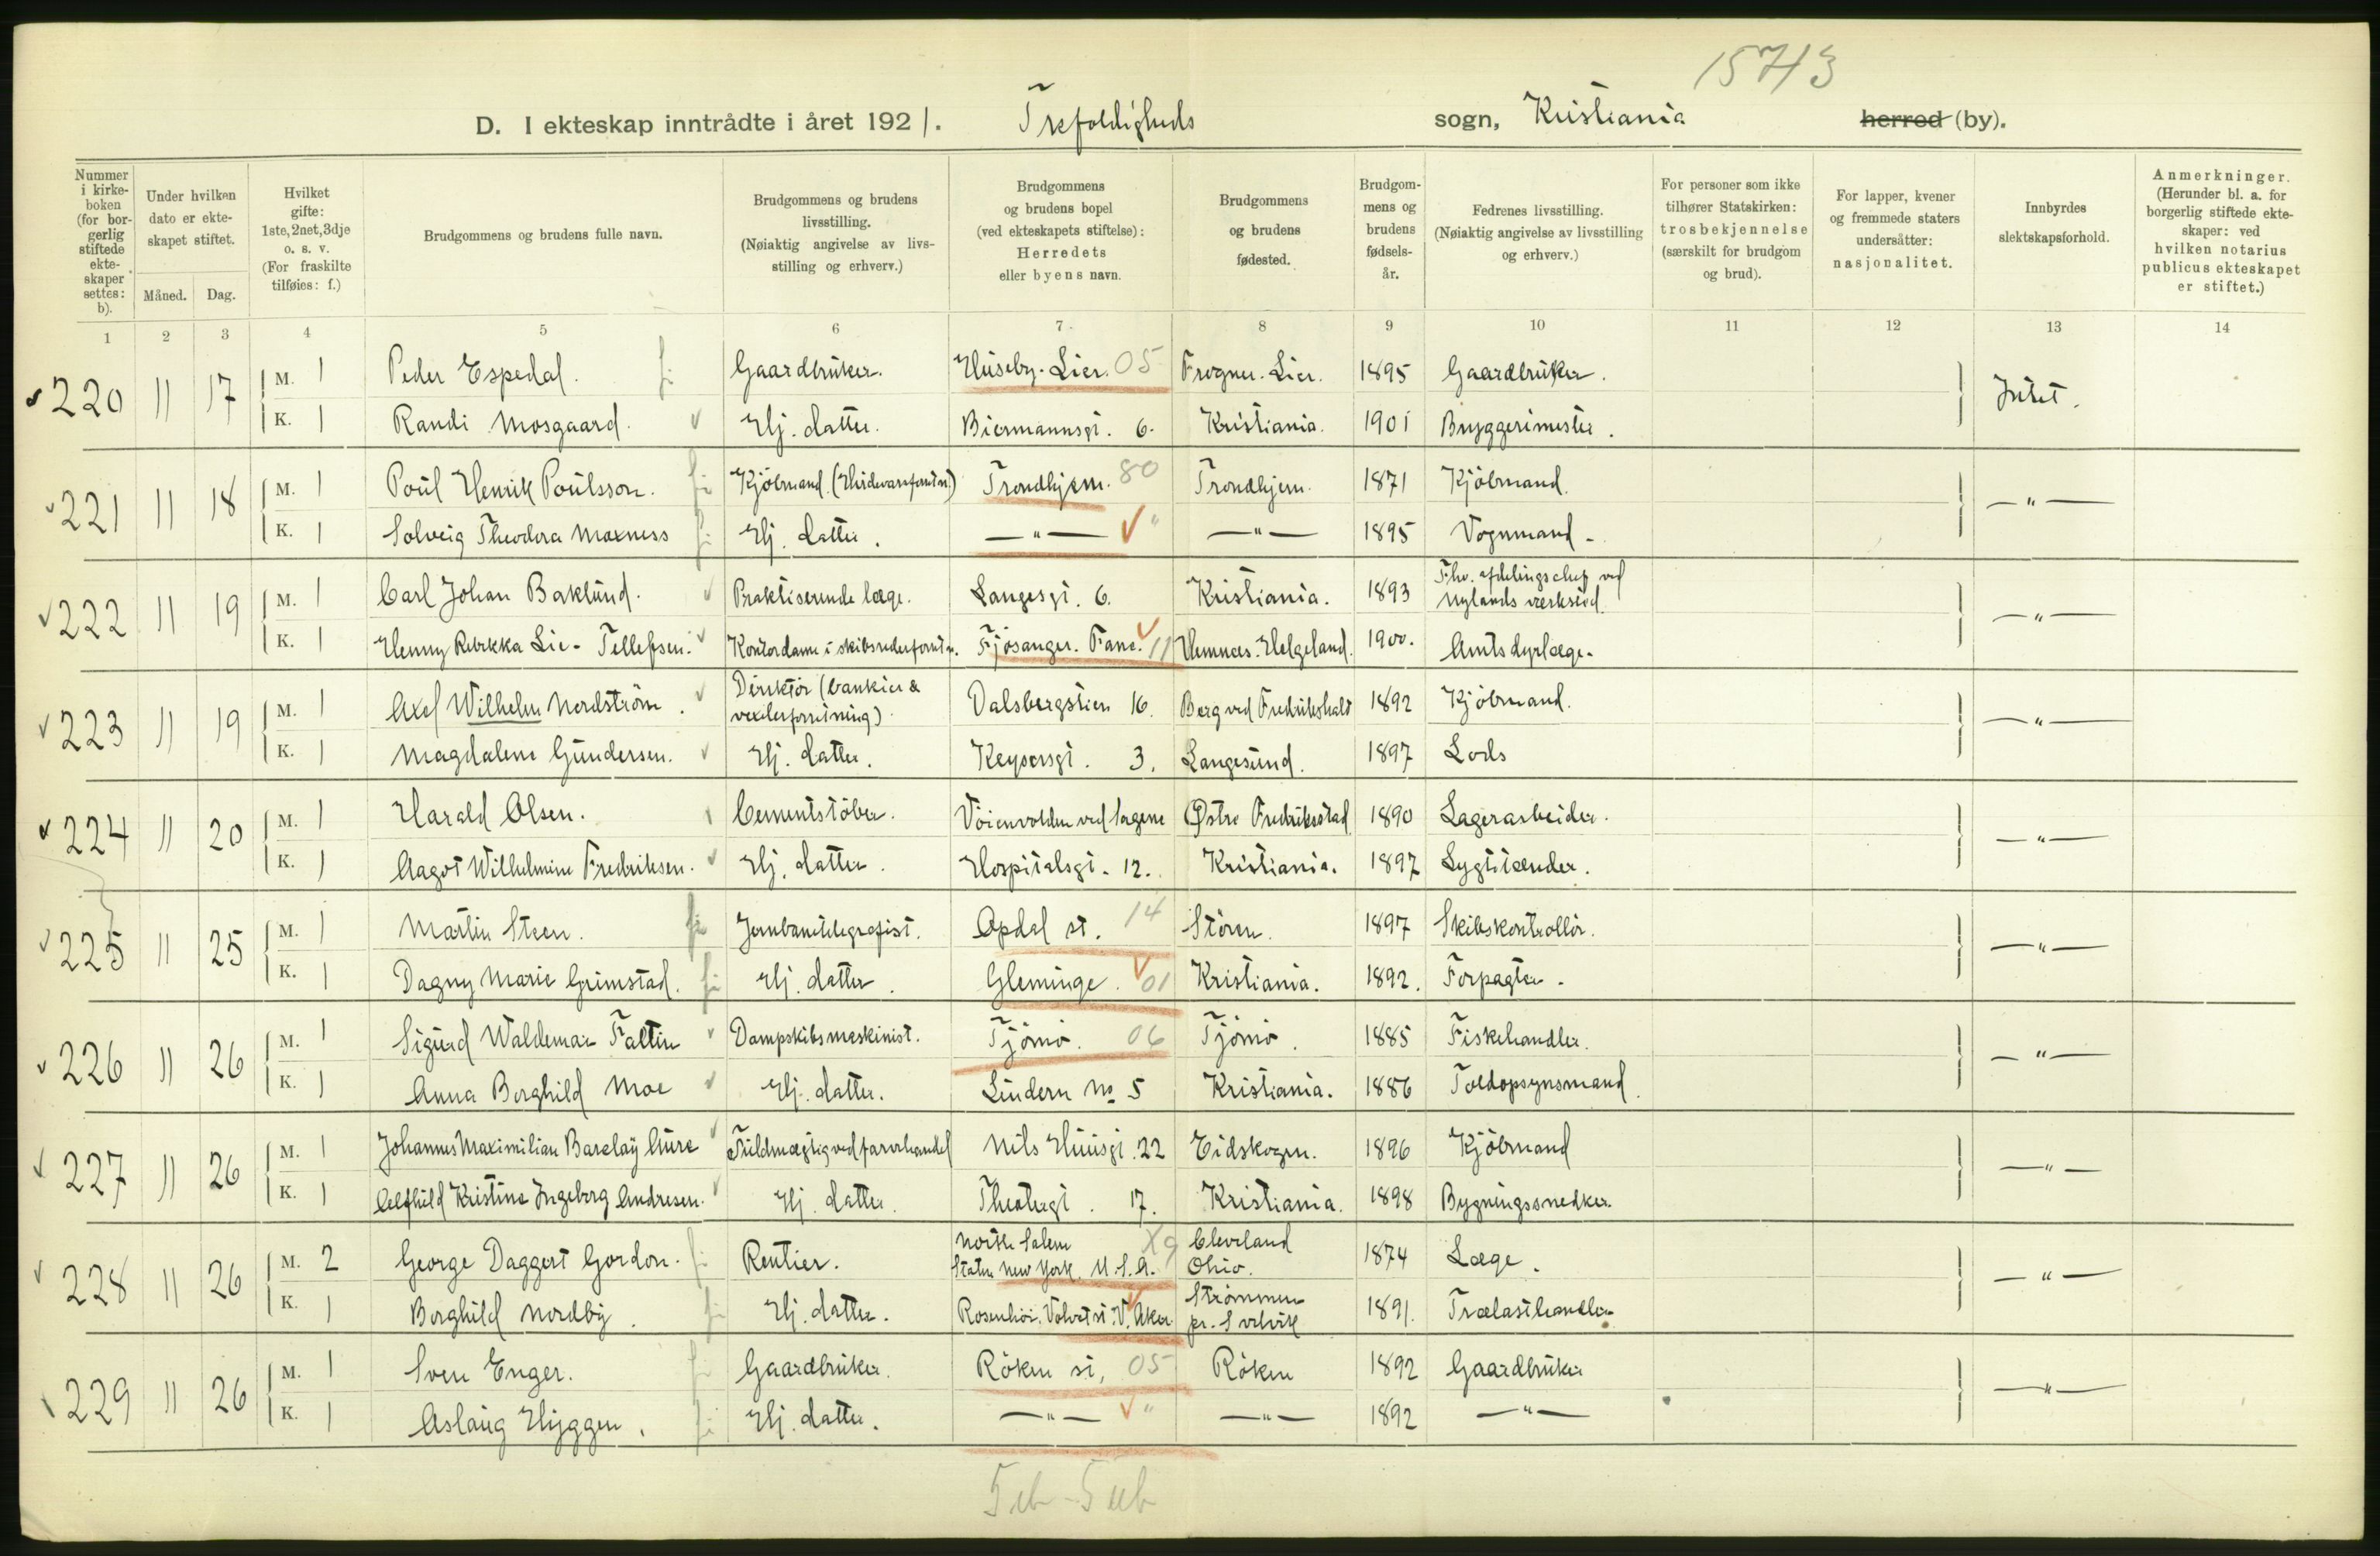 15713
D. I ekteskap inntrådte i året 1921. Trefoldigheds sogn, Kristiania herred (by).
Nummer i kirkeboken (for borgerlig stiftede ekteskaper settes: b).
Under hvilken dato er ekteskapet stiftet.
Måned. Dag.
Hvilket gifte: 1ste, 2net, 3dje o. s. v. (For fraskilte tilføies: f.)
Brudgommens og brudens fulle navn.
Brudgommens og brudens livsstilling. (Nøiaktig angivelse av livsstilling og erhverv.)
Brudgommens og brudens bopel (ved ekteskapets stiftelse): Herredets eller byens navn.
Brudgommens og brudens fødested.
Brudgommens og brudens fødselsår.
Fedrenes livsstilling. (Nøiaktig angivelse av livsstilling og erhverv.)
For personer som ikke tilhører Statskirken: trosbekjennelse (særskilt for brudgom og brud).
For lapper, kvener og fremmede staters undersåtter: nasjonalitet.
Innbyrdes slektskapsforhold.
Anmerkninger. (Herunder bl. a. for borgerlig stiftede ekteskaper: ved hvilken notarius publicus ekteskapet er stiftet.)
1 2 3 4 5 6 7 8 9 10 11 12 13 14
220 11 17 M. 1 Peder Espedal. Gaardbruker. Huseby. Lier. 05 Frogner. Lier. 1895 Gaardbruker. Intet.
K. 1 Randi Mosgaard. Hj. datter. Biermannsgt. 6. Kristiania. 1901 Bryggerimester.
221 11 18 M. 1 Poul Henrik Poulsson. Kjöbmand. Trondhjem. 80 Trondhjem. 1871 Kjöbmand. — " —
K. 1 Solveig Theodora Moxness Hj. datter. — " — " — " — 1895 Vognmand.
222 11 19 M. 1 Carl Johan Baklund. Praktiserende læge. Langesgt. 6. Kristiania. 1893 Fhv. afdelingschef ved Nylands værksted. — " —
K. 1 Henny Rebekka Lie-Tellefsen. Kontordame i skibsrederforretn. Fjösanger. Fane. 11 Hemnes. Helgeland. 1900. Amtsdyrlæge.
223 11 19 M. 1 Axel Wilhelm Nordström. Direktör (bankier & vexlerforretning). Dalsbergstien 16. Berg ved Fredrikshald 1892 Kjöbmand. — " —
K. 1 Magdalene Gundersen. Hj. datter. Keysersgt. 3. Langesund. 1897 Lods
224 11 20 M. 1 Harald Olsen. Cementstöber. Vöienvolden ved Sagene Østre Fredriksstad 1890 Lagerarbeider. — " —
K. 1 Aagot Wilhelmine Fredriksen. Hj. datter. Hospitalsgt. 12. Kristiania. 1897 Lygttænder.
225 11 25 M. 1 Martin Steen. Jernbanetelegrafist. Opdal st. 14 Stören. 1897 Skibskontrollör. — " —
K. 1 Dagny Marie Grimstad. Hj. datter. Gleminge. 01 Kristiania. 1892. Forpagter.
226 11 26 M. 1 Sigurd Waldemar Faltin Dampskibsmaskinist. Tjömö. 06 Tjömö. 1885 Fiskehandler. — " —
K. 1 Anna Borghild Moe Hj. datter. Lindern No 5 Kristiania. 1886 Toldopsynsmand.
227 11 26 M. 1 Johannes Maximilian Barclay Aure Fuldmægtig ved farvehandel Nils Huusgt. 22 Eidskogen. 1896 Kjöbmand — " —
K. 1 Alfhild Kristine Ingeborg Andresen. Hj. datter. Theatergt. 17. Kristiania. 1898 Bygningssnedker.
228 11 26 M. 2 George Daggert Gordon. Rentier. North Salem Staten New York. U.S.A. X9 Cleveland Ohio. 1874 Læge. — " —
K. 1 Borghild Nordby. Hj. datter. V. Aker. Strömmen pr. Svelvik 1891. Trælasthandler
229 11 26 M. 1 Sven Enger. Gaardbruker. Röken st. 05 Röken 1892 Gaardbruker — " —
K. 1 Aslaug Hyggen. Hj. datter. — " — " — " — 1892 — " —